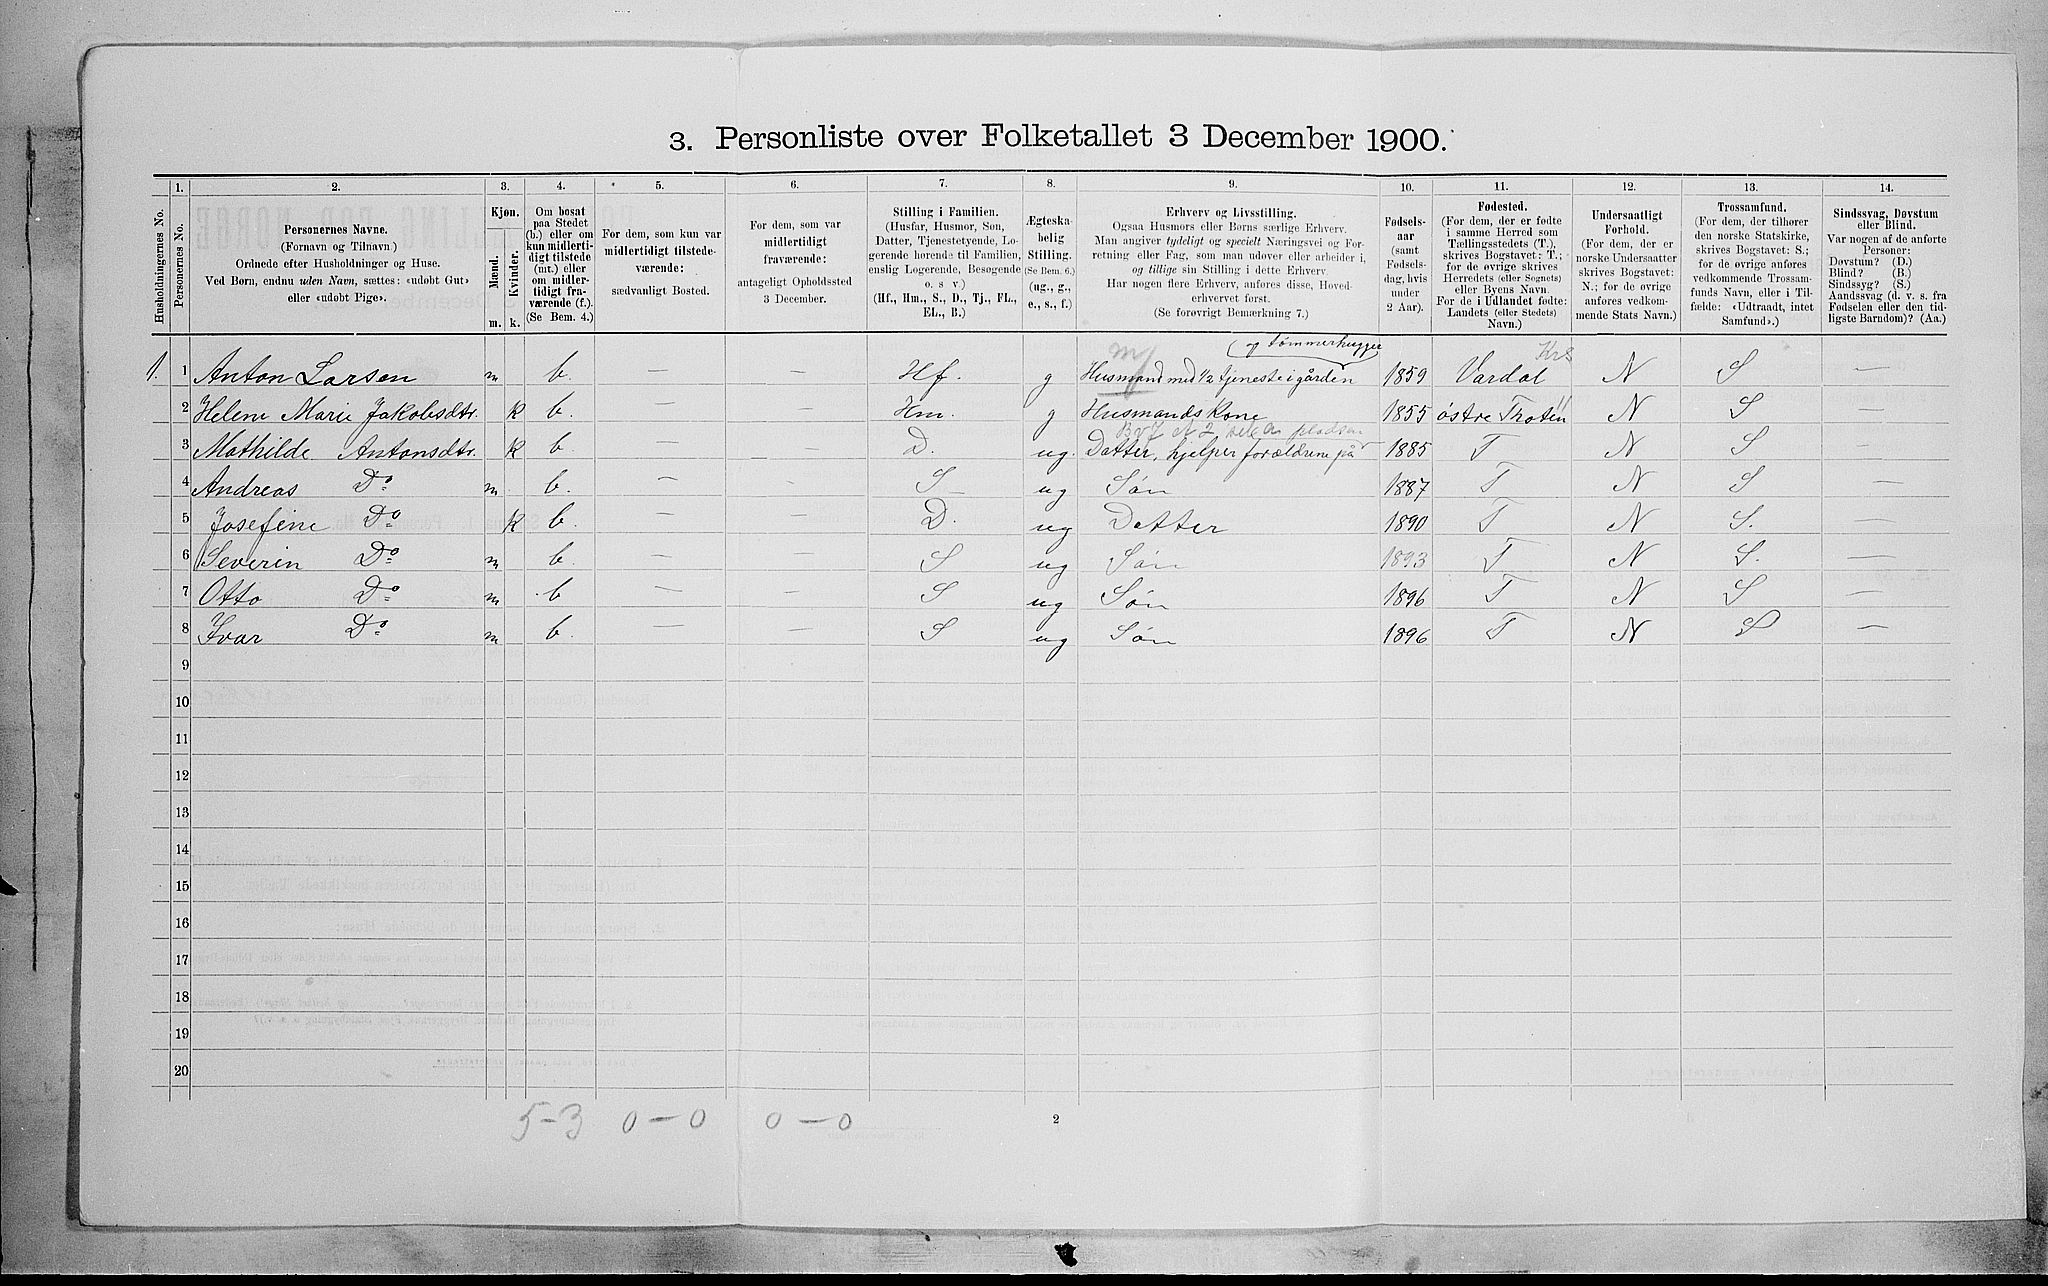 3. Personliste over Folketallet 3 December 1900.
1. 2. 3. 4. 5. 6. 7. 8. 9. 10. 11. 12. 13. 14.
Husholdningernes No.
Personernes No.
Personernes Navne.
(Fornavn og Tilnavn)
Ordnede efter Husholdninger og Huse.
Ved Børn, endnu uden Navn, sættes: «udøbt Gut»
eller «udøbt Pige».
Kjøn.
Mænd.
Kvinder.
m. k.
Om bosat
paa Stedet
(b.) eller om
kun midlerti-
digt tilstede
(mt.) eller
om midler-
tidigt fra-
værende (f.).
(Se Bem. 4.)
For dem, som kun var
midlertidigt tilstede-
værende:
sædvanligt Bosted.
For dem, som var
midlertidigt
fraværende:
antageligt Opholdssted
3 December.
Stilling i Familien.
(Husfar, Husmor, Søn,
Datter, Tjenestetyende, Lo-
gerende hørende til Familien,
enslig Logerende, Besøgende
o. s v.)
(Hf., Hm., S., D., Tj., FL.,
EL., B.)
Ægteska-
belig
Stilling.
(Se Bem. 6.)
(ug., g.,
e., s., f.)
Erhverv og Livsstilling.
Ogsaa Husmors eller Børns særlige Erhverv.
Man angiver tydeligt og specielt Næringsvei og For-
retning eller Fag, som man udøver eller arbeider i,
og tillige sin Stilling i dette Erhverv.
Har nogen flere Erhverv, anføres disse, Hoved-
erhvervet først.
(Se forøvrigt Bemærkning 7.)
Fødsels-
aar
(samt
Fødsels-
dag, hvis
under
2 Aar).
Fødested.
(For dem, der er fødte
i samme Herred som
Tællingsstedets (T.),
skrives Bogstavet: T.;
for de øvrige skrives
Herredets (eller Sognets)
eller Byens Navn.
For de i Udlandet fødte:
Landets (eller Stedets)
Navn.)
Undersaatligt
Forhold.
(For dem, der er
norske Undersaatter
skrives Bogstavet:
N.; for de øvrige
anføres vedkom-
mende Stats Navn.)
Trossamfund.
(For dem, der tilhører
den norske Statskirke,
skrives Bogstavet: S.;
for de øvrige anføres
vedkommende Trossam-
funds Navn, eller i Til-
fælde: «Udtraadt, intet
Samfund».)
Sindssvag, Døvstum
eller Blind.
Var nogen af de anførte
Personer:
Døvstum? (D.)
Blind? (B.)
Sindssyg? (S.)
Aandssvag (d. v. s. fra
Fødselen eller den tid-
ligste Barndom)? (Aa.)
og tømmerhugger
Krs
1. 1 Anton Larsen m b. — — Hf. g Husmand med 1/2 tjeneste i gården 1859 Vardal N S —
2 Helene Marie Jakobsdtr. k b. — — Hm. g Husmandskone 1855 østre Thoten N S —
3 Mathilde Antonsdtr. k b. — — D. ug. Datter, hjelper forældrene på 1885 T N S —
4 Andreas Do m b. — — S ug Søn 1887 T N S —
5 Josefine Do k b. — — D. ug Datter 1890 T N S. —
6 Severin Do m b. — — S ug Søn 1893 T N S. —
7 Otto Do m b — — S ug Søn 1896 T N S —
8 Ivar Do m b. — — S ug Søn 1896 T N S —
9
10
11
12
13
14
15
16
17
18
19
20
5-3 0—0 0—0 2